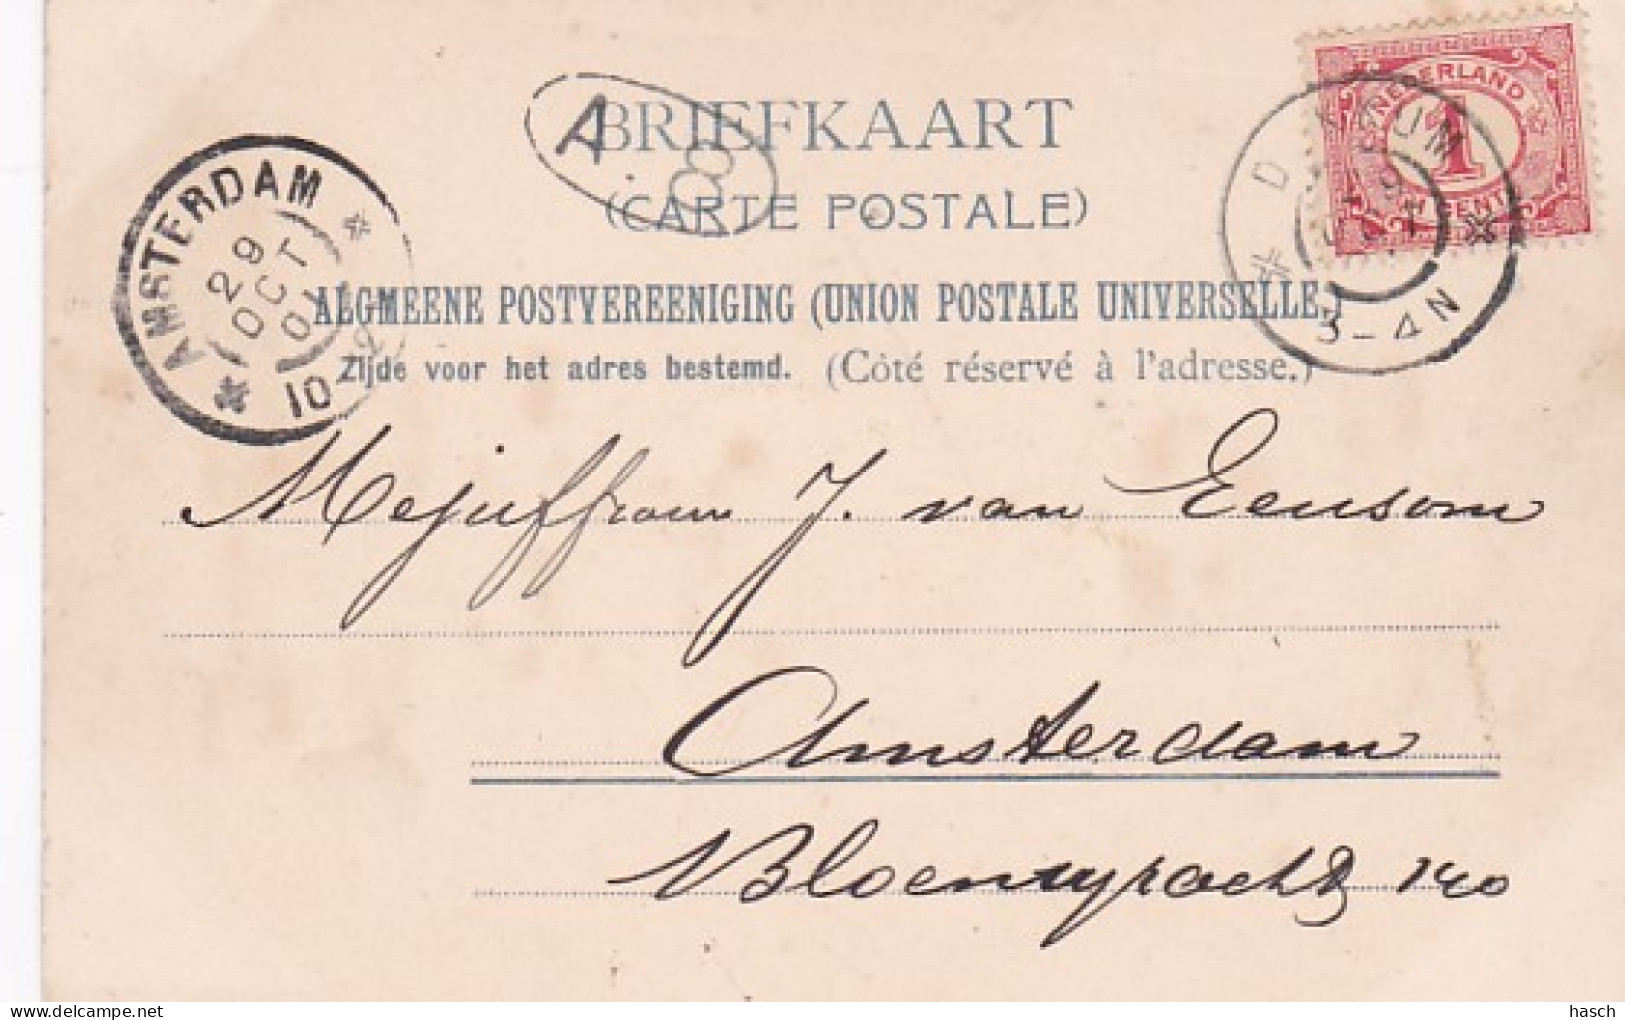 BRIEFKAART
A
(CARTE POSTALE)
ALGMEENE POSTVEREENIGING (UNION POSTALE UNIVERSELLE.)
Zijde voor het adres bestemd. (Côté réservé à l'adresse.)
AMSTERDAM
29
OCT
01
10
NEDERLAND
1
CENT
3-4N
Mejuffrouw J. van Eensom
Amsterdam
140
hasch